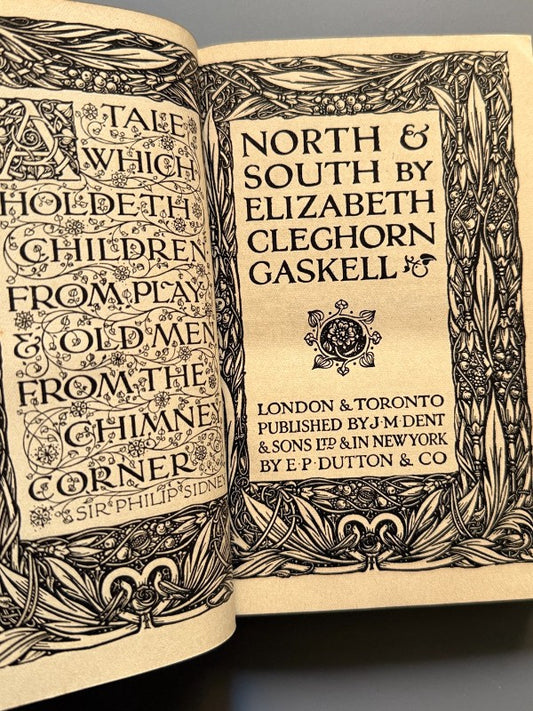 A TALE
WHICH
HOLDETH
CHILDREN
FROM PLAY
& OLD MEN
FROM THE
CHIMNEY
CORNER
SIR PHILIP SIDNEY
NORTH &
SOUTH BY
ELIZABETH
CLEGHORN
GASKELL
LONDON & TORONTO
PUBLISHED BY J·M·DENT
& SONS LTD & IN NEW YORK
BY E·P·DUTTON & CO